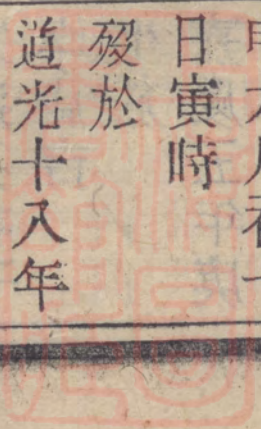 日寅時
歿於
道光十八年